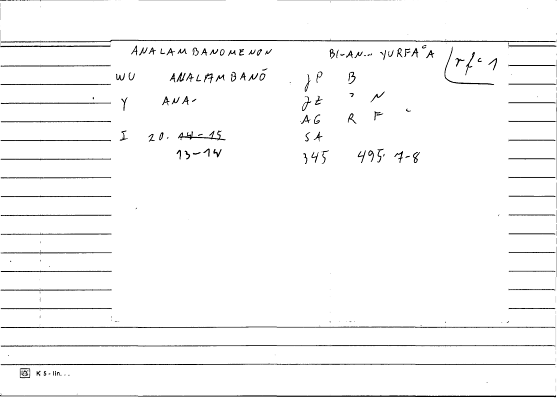 ANALAMBANOMENON BI-AN... YURFAʿA rfʿ 1
WU ANALAMBANŌ JP B
Y ANA- JZ ʾ N
AG R F ʿ
I 20. 14-15 SA
13-14 345 495. 7-8
K 5 - lin...